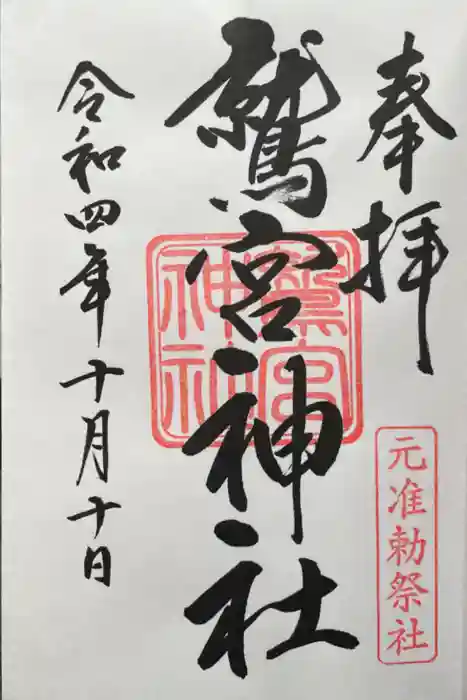 奉拝
元准勅祭社
鷲宮神社
鷲宮神社
令和四年十月十日